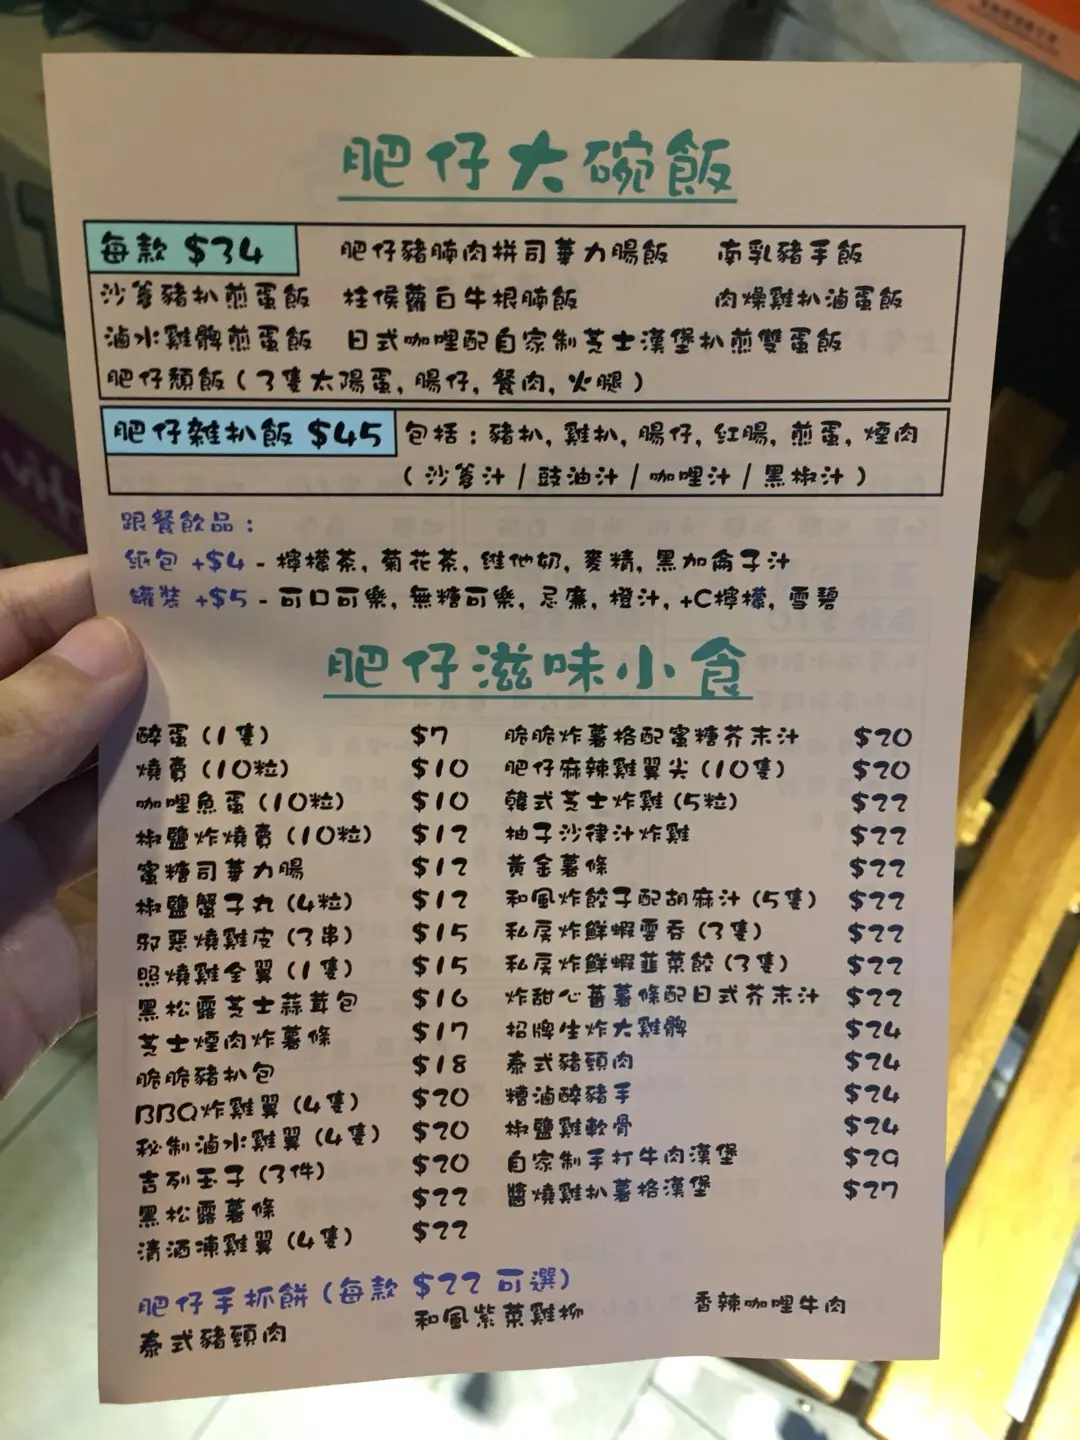 肥仔大碗飯
每款 $34 肥仔豬腩肉拼司華力腸飯 南乳豬手飯
沙爹豬扒煎蛋飯 柱侯蘿白牛根腩飯 肉燥雞扒滷蛋飯
滷水雞髀煎蛋飯 日式咖哩配自家制芝士漢堡扒煎雙蛋飯
肥仔頹飯 ( 3隻太陽蛋, 腸仔, 餐肉, 火腿 )
肥仔雜扒飯 $45 包括 : 豬扒, 雞扒, 腸仔, 紅腸, 煎蛋, 煙肉
( 沙爹汁 / 豉油汁 / 咖哩汁 / 黑椒汁 )
跟餐飲品 :
紙包 +$4 - 檸檬茶, 菊花茶, 維他奶, 麥精, 黑加侖子汁
罐裝 +$5 - 可口可樂, 無糖可樂, 忌廉, 橙汁, +C檸檬, 雪碧
肥仔滋味小食
醉蛋 (1隻) $7
燒賣 (10粒) $10
咖哩魚蛋 (10粒) $10
椒鹽炸燒賣 (10粒) $12
蜜糖司華力腸 $12
椒鹽蟹子丸 (4粒) $12
邪惡燒雞皮 (3串) $15
照燒雞全翼 (1隻) $15
黑松露芝士蒜茸包 $16
芝士煙肉炸薯條 $17
脆脆豬扒包 $18
BBQ炸雞翼 (4隻) $20
秘制滷水雞翼 (4隻) $20
吉列玉子 (3件) $20
黑松露薯條 $22
清酒凍雞翼 (4隻) $22
脆脆炸薯格配蜜糖芥末汁 $20
肥仔麻辣雞翼尖 (10隻) $20
韓式芝士炸雞 (5粒) $22
柚子沙律汁炸雞 $22
黃金薯條 $22
和風炸餃子配胡麻汁 (5隻) $22
私房炸鮮蝦雲吞 (3隻) $22
私房炸鮮蝦韮菜餃 (3隻) $22
炸甜心蕃薯條配日式芥末汁 $22
招牌生炸大雞髀 $24
泰式豬頸肉 $24
糟滷醉豬手 $24
椒鹽雞軟骨 $24
自家制手打牛肉漢堡 $29
醬燒雞扒薯格漢堡 $27
肥仔手抓餅 (每款 $22 可選)
泰式豬頸肉 和風紫菜雞柳 香辣咖哩牛肉